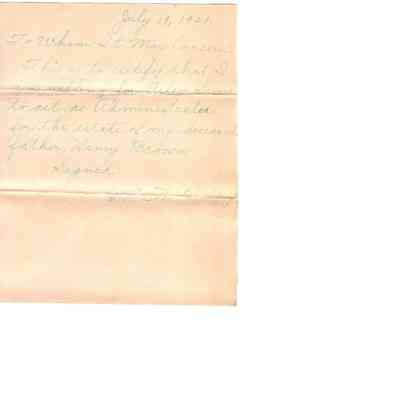 July 19, 1921.
To Whom It May Concern
This is to certify that I
am willing for
to act as Administrator
for the estate of my deceased
father Henry Brown
Signed